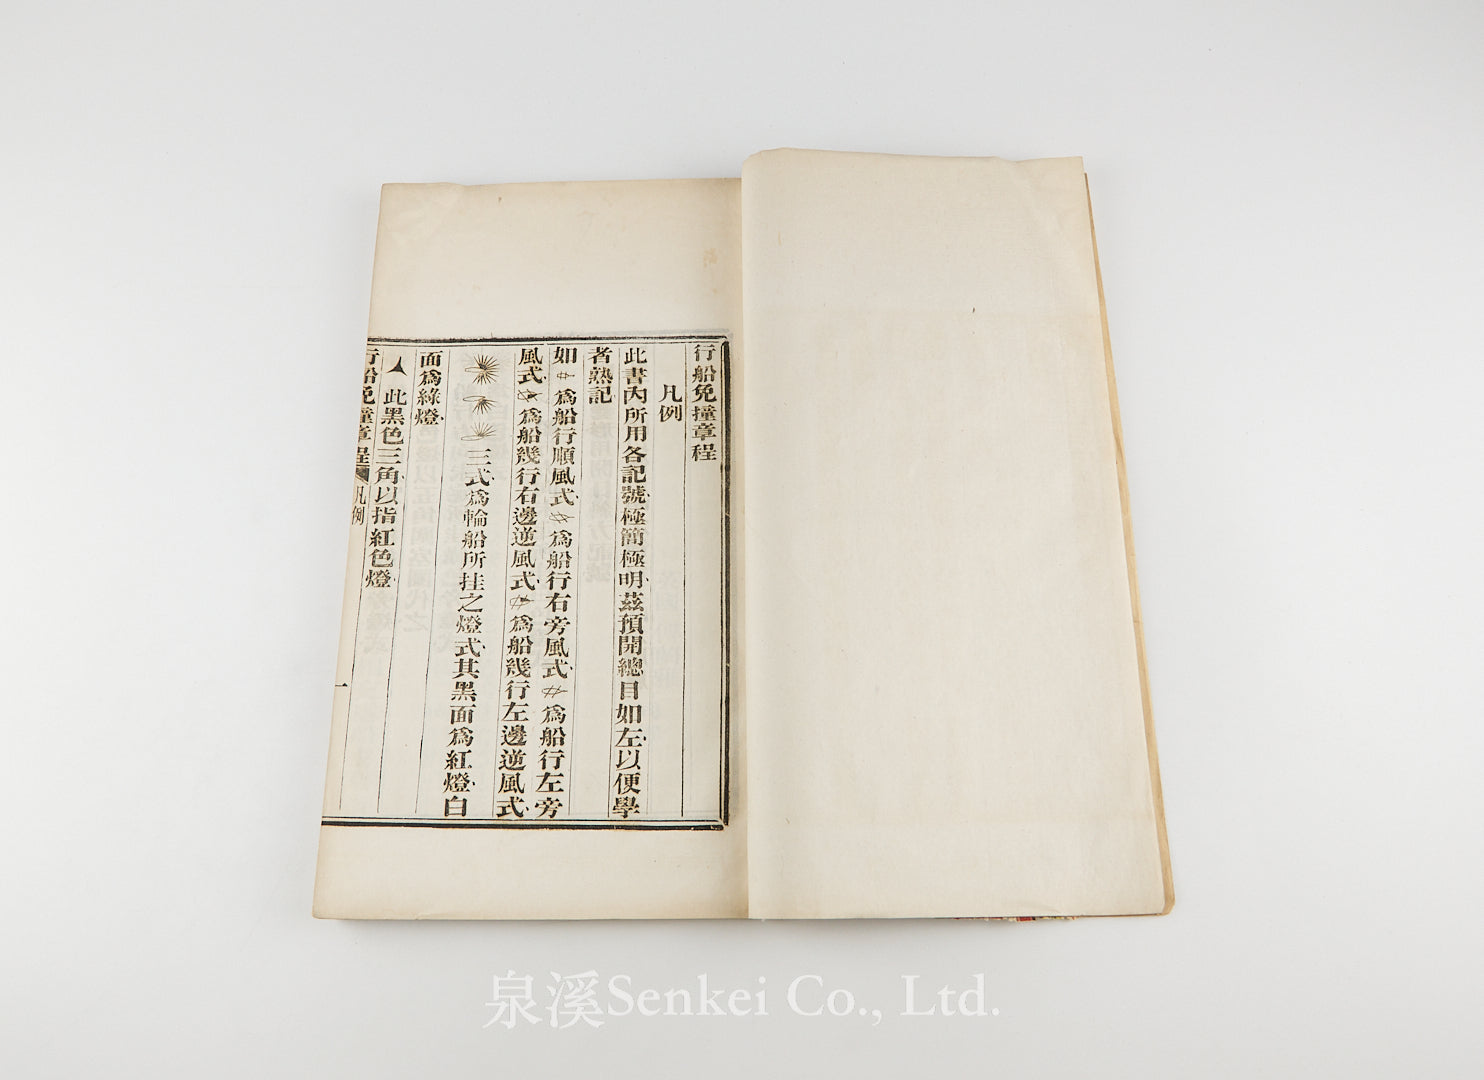 行船免撞章程
凡例
此書內所用各記號極簡極明茲預開總目如左以便學
者熟記
如 爲船行順風式 爲船行右旁風式 爲船行左旁
風式 爲船幾行右邊逆風式 爲船幾行左邊逆風式
三式爲輪船所挂之燈式其黑面爲紅燈白
面爲綠燈
▲此黑色三角以指紅色燈
行船免撞章程 凡例 一
泉溪Senkei Co., Ltd.